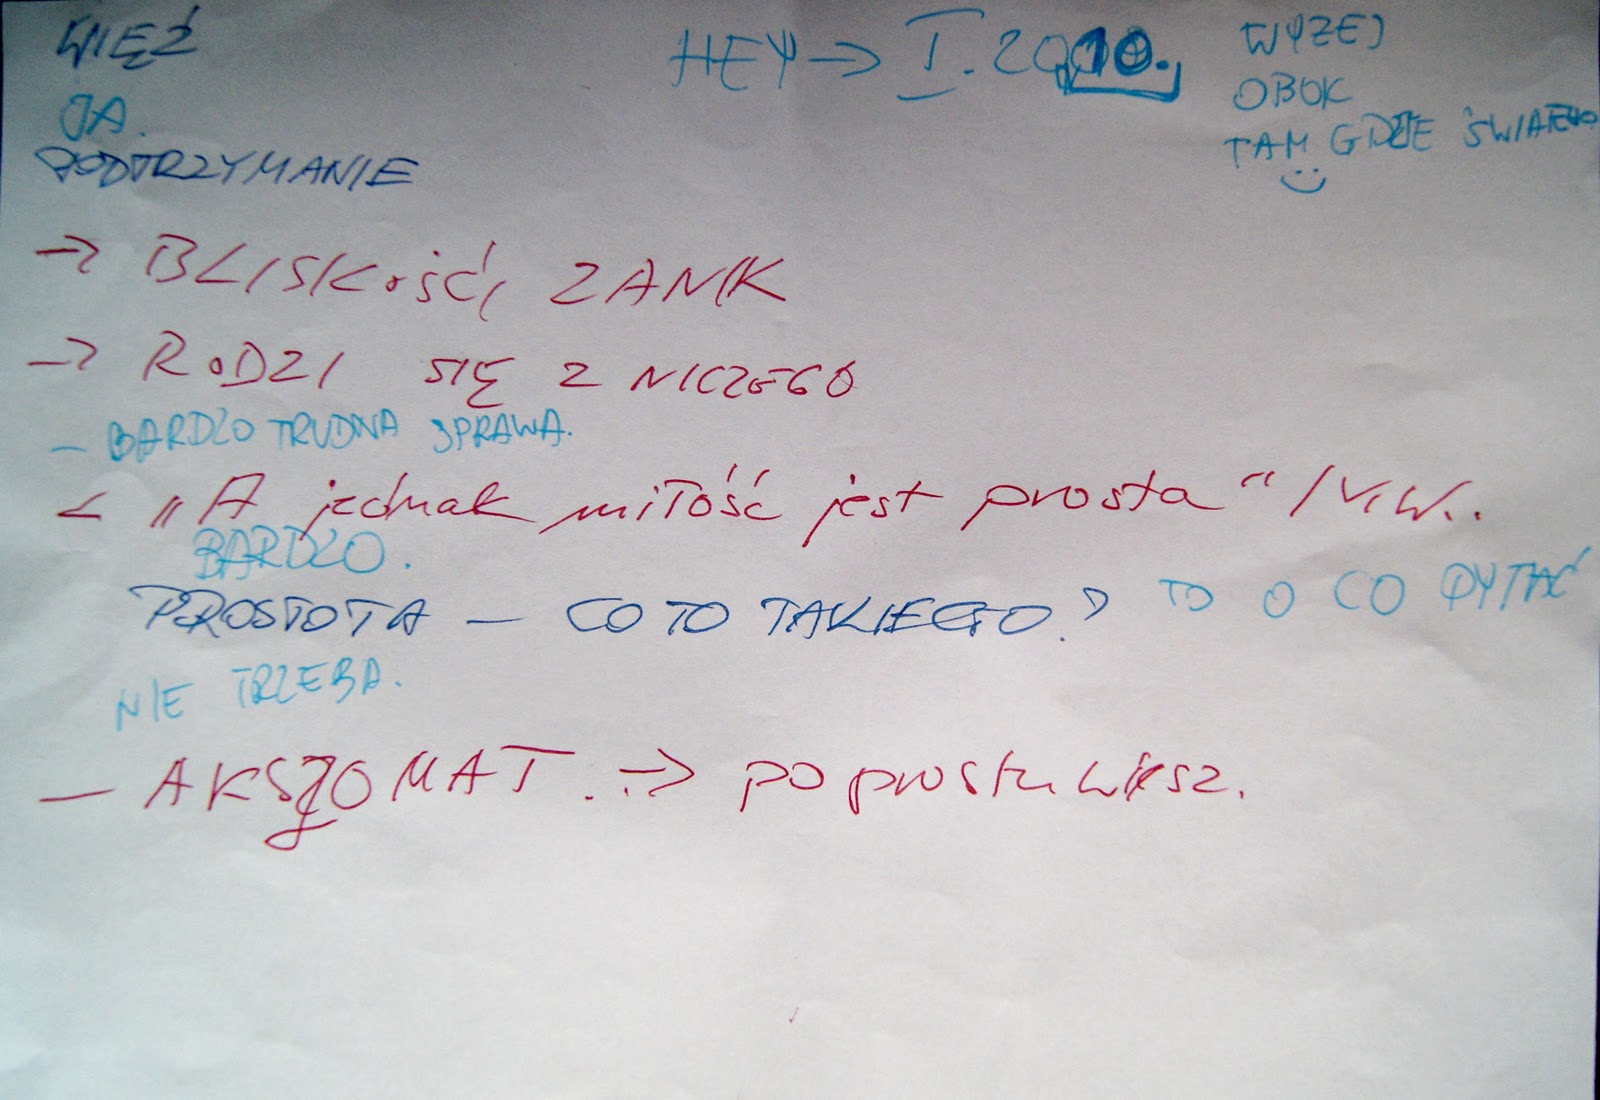 WIĘŹ
JA.
PODTRZYMANIE
HEY → I. 2010.
WYŻEJ
OBOK
TAM GDZIE ŚWIATŁO
→ BLISKOŚĆ, ZANIK
→ RODZI SIĘ Z NICZEGO
– BARDZO TRUDNA SPRAWA.
< „A jednak miłość jest prosta“ / V.W..
BARDZO.
PROSTOTA – CO TO TAKIEGO? TO O CO PYTAĆ
NIE TRZEBA.
– AKSJOMAT. → po prostu wiesz.